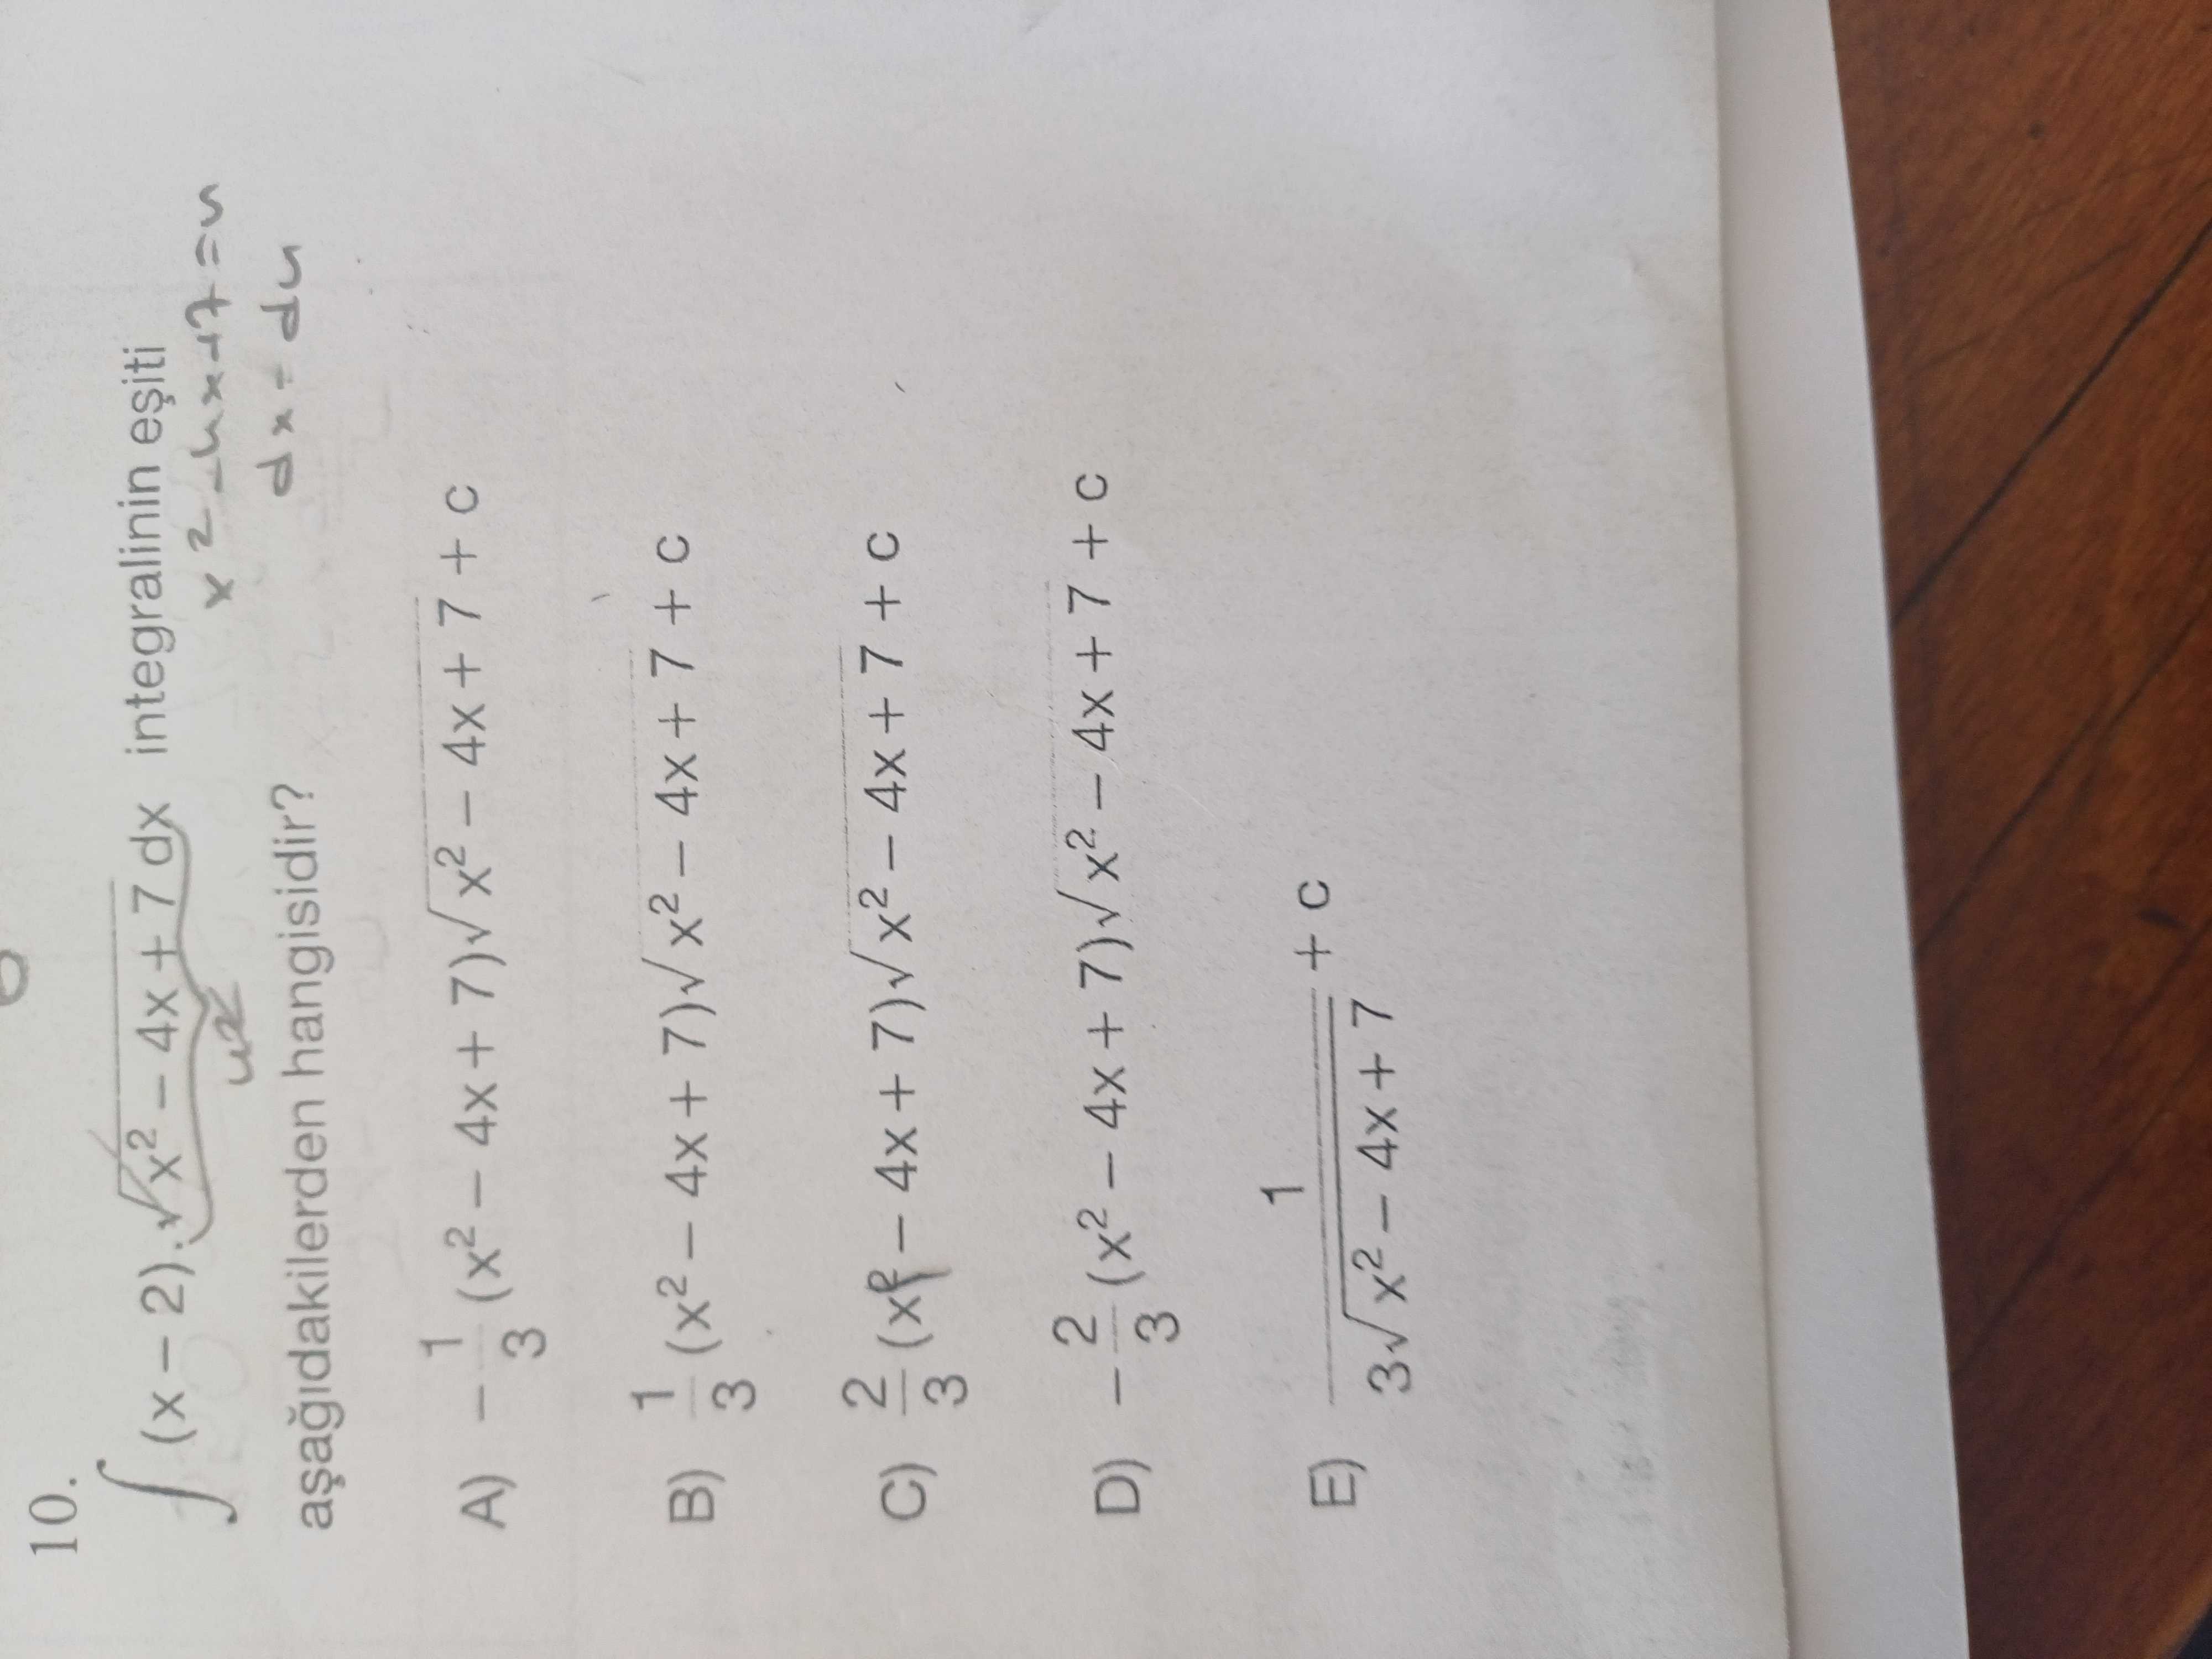 10.
∫ (x − 2).√x² − 4x + 7 dx integralinin eşiti
x² − 4x + 7 = u
aşağıdakilerden hangisidir?
dx = du
A) − 1/3 (x² − 4x + 7)√x² − 4x + 7 + c
B) 1/3 (x² − 4x + 7)√x² − 4x + 7 + c
C) 2/3 (x² − 4x + 7)√x² − 4x + 7 + c
D) − 2/3 (x² − 4x + 7)√x² − 4x + 7 + c
E) 1/3√x² − 4x + 7 + c